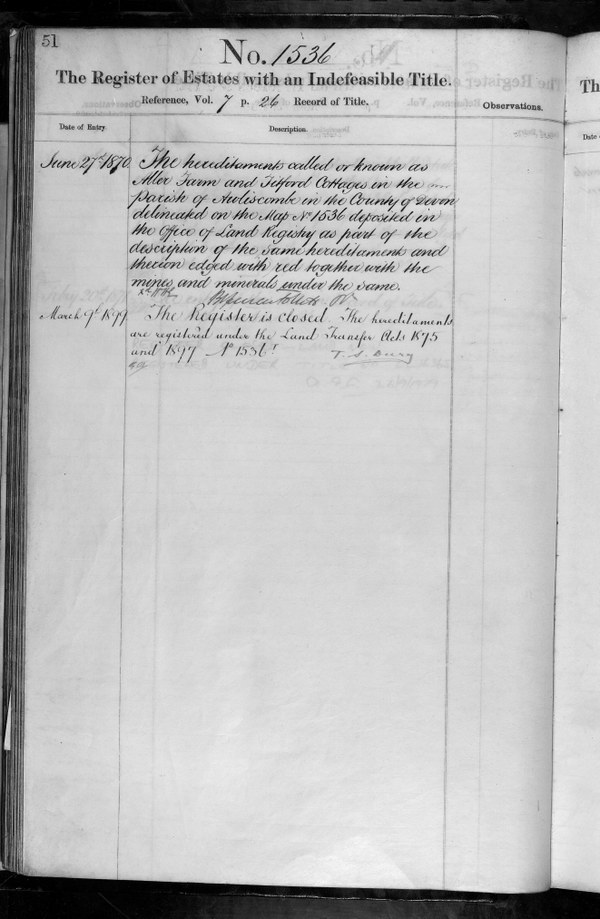 51
No. 1536
The Register of Estates with an Indefeasible Title.
Reference, Vol. 7 p. 26 Record of Title.
Observations.
Date of Entry.
Description.
June 27th 1870
The hereditaments called or known as
Aller Farm and Titford Cottages in the
Parish of Awliscombe in the County of Devon
delineated on the Map No 1536 deposited in
the Office of Land Registry as part of the
description of the same hereditaments and
thereon edged with red together with the
mines and minerals under the same.
March 9th 1899
The Register is closed. The hereditaments
are registered under the Land Transfer Acts 1875
and 1897 No 1536
Th
Date